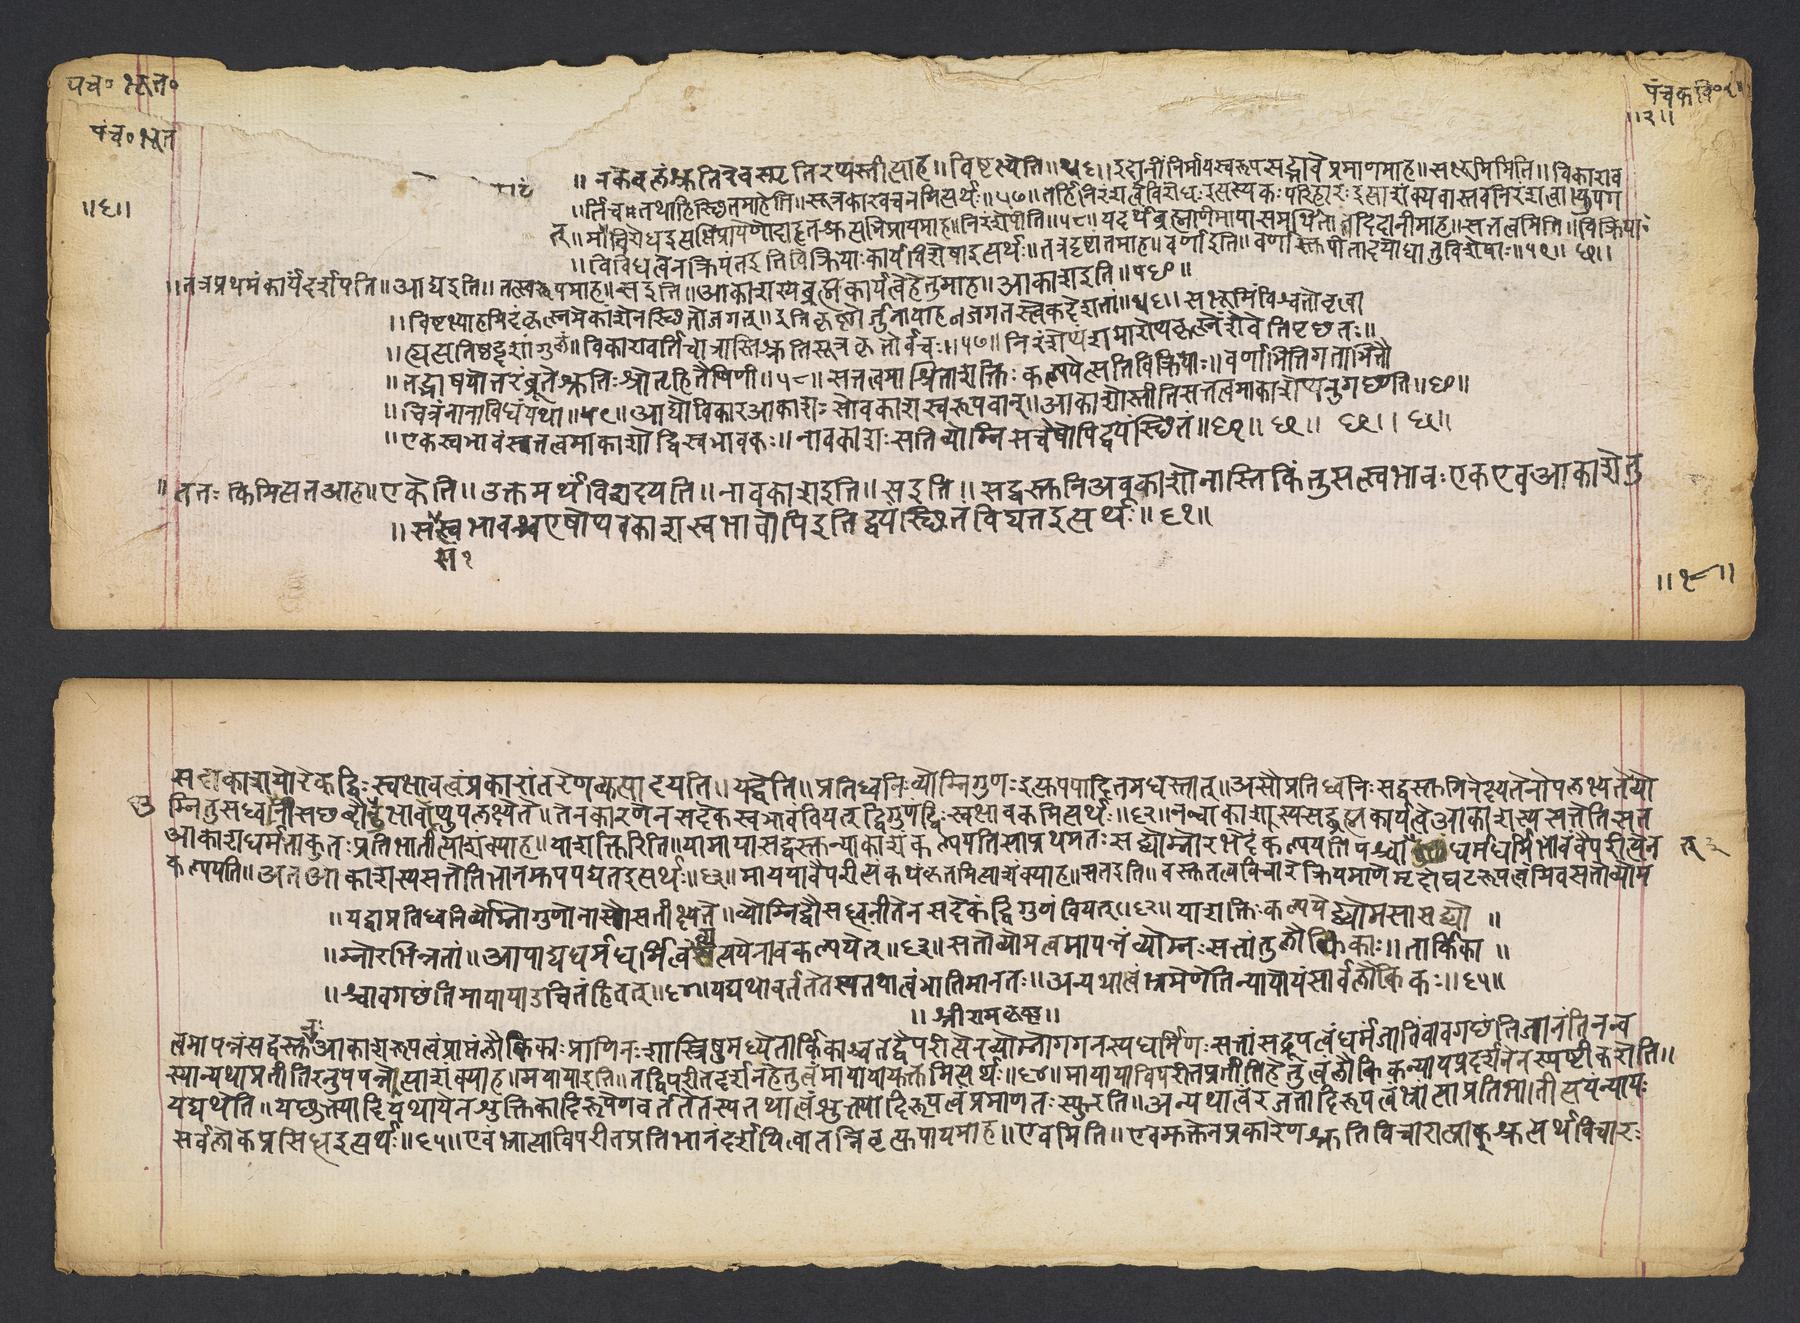 पंच॰ भूत॰
पंच॰ भूत
पंचकवि॰
॥२॥
॥६॥
॥ न केवलं श्रुतिरेव स्मृतिरप्यस्तीत्याह॥ विष्टभ्येति॥५६॥ इदानीं निर्मायस्वरूपसद्भावे प्रमाणमाह॥ सभूमिमिति॥ विकाराव
॥र्ति च॥ तथाहि स्थितमाहेति॥ सूत्रकारवचनमित्यर्थः॥५७॥ तर्हि निरंशत्वविरोधः इत्यस्य कः परिहारः इत्याशंक्य वास्तवनिरंशत्वाभ्युपग
त्॥ मान्नविरोध इत्यभिप्रायेणोदाहृतश्रुत्यभिप्रायमाह॥ निरंशेपीति॥५८॥ यदर्थं ब्रह्मणि माया समर्थिता तदिदानीमाह॥ सतत्वमिति॥ विक्रियाः
॥ विविधत्वेन क्रियंत इति विक्रियाः कार्यविशेषा इत्यर्थः॥ तत्र दृष्टांतमाह॥ वर्णा इति॥ वर्णा रक्तपीतादयो धातुविशेषाः॥५९॥ छ॥
॥ तत्र प्रथमं कार्यं दर्शयति॥ आद्य इति॥ तत्स्वरूपमाह॥ स इति॥ आकाशस्य ब्रह्मकार्यत्वे हेतुमाह॥ आकाश इति॥६०॥
॥ विष्टभ्याहमिदं कृत्स्नमेकांशेन स्थितो जगत्॥ इति कृष्णोर्जुनायाह जगतस्त्वेकदेशतां॥५६॥ सभूमिं विश्वतो वृत्वा
॥ ह्यत्यतिष्ठद्दशांगुलं॥ विकारावर्ति चात्रास्ति श्रुतिसूत्रकृतोर्वचः॥५७॥ निरंशेप्यंशमारोप्य कृत्स्नेंशे वेति पृच्छतः॥
॥ तद्भाषयोत्तरं ब्रूते श्रुतिः श्रोतृहितैषिणी॥५८॥ सतत्वमाश्रिता शक्तिः कल्पयेत्सति विक्रियाः॥ वर्णा भित्तिगता भित्तौ
॥ चित्रं नानाविधं यथा॥५९॥ आद्यो विकार आकाशः सोवकाशस्वरूपवान्॥ आकाशोस्तीति सतत्वमाकाशेप्यनुगच्छति॥६०॥
॥ एकस्वभावं सतत्वमाकाशो द्विस्वभावकः॥ नावकाशः सति व्योम्नि सचैषोपि द्वयं स्थितं॥६१॥ छ॥ छ॥ छ॥
॥ ततः किमित्यत आह॥ एकेति॥ उक्तमर्थं विशदयति॥ नावकाश इति॥ स इति॥ सद्वस्तुनि अवकाशो नास्ति किंतु सत्स्वभावः एक एव आकाशे तु
॥ सत्स्वभावश्च एषोप्यवकाशस्वभावोपि इति द्वयं स्थितं विद्यत इत्यर्थः॥६१॥
सं १
॥१८॥
सदाकाशयोरेकद्विःस्वभावत्वं प्रकारांतरेण व्युत्पादयति॥ यद्वेति॥ प्रतिध्वनिः व्योम्नि गुणः इत्युपपादितमधस्तात्॥ असौ प्रतिध्वनिः सद्वस्तुनि नेष्यते नोपलभ्यते व्यो
म्नि तु सध्वनी सच्छब्दौ उभावप्युपलभ्येते॥ तेन कारणेन सदेकस्वभावं वियत् द्विगुणं द्विःस्वभावकमित्यर्थः॥६२॥ नन्वाकाशस्य सद्ब्रह्मकार्यत्वे आकाशस्य सत्तेति सत
आकाशधर्मता कुतः प्रतिभातीत्याशंक्याह॥ या शक्तिरिति॥ या माया सद्वस्तुन्याकाशं कल्पयति सा प्रथमतः सद्व्योम्नोरभेदं कल्पयति पश्चात् धर्मधर्मिभावं वैपरीत्येन
कल्पयति॥ अत आकाशस्य सत्तेति भानमुपपद्यत इत्यर्थः॥६३॥ मायया वैपरीत्यं कथं कृतमित्याशंक्याह॥ सत इति॥ वस्तुतत्वविचारे क्रियमाणे मृदो घटरूपत्वमिव सतो व्योम
॥ यद्वा प्रतिध्वनिर्व्योम्नो गुणो नासौ सतीक्ष्यते॥ व्योम्नि द्वौ सद्ध्वनी तेन सदेकं द्विगुणं वियत्॥६२॥ या शक्तिः कल्पयेद्व्योम सा सद्व्यो॥
॥ म्नोरभिन्नतां॥ आपाद्य धर्मधर्मित्वं व्यत्ययेनावकल्पयेत्॥६३॥ सतो व्योमत्वमापन्नं व्योम्नः सत्तां तु लौकिकाः॥ तार्किका॥
॥ श्चावगच्छंति मायाया उचितं हि तत्॥६४॥ यद्यथा वर्तते तस्य तथात्वं भाति मानतः॥ अन्यथात्वं भ्रमेणेति न्यायोयं सार्वलौकिकः॥६५॥
॥ श्रीरामकृष्ण॥
त्वमापन्नं सद्वस्तुनः आकाशरूपत्वं प्राप्तं लौकिकाः प्राणिनः शास्त्रिषु मध्ये तार्किकाश्च तद्वैपरीत्येन व्योम्नो गगनस्य धर्मिणः सत्तां सद्रूपत्वं धर्मजातिं वावगच्छंति जानंति नन्व
स्यान्यथाप्रतीतिरनुपपन्नेत्याशंक्याह॥ मायाया इति॥ तद्विपरीतदर्शनहेतुत्वं मायाया युक्तमित्यर्थः॥६४॥ मायाया विपरीतप्रतीतिहेतुत्वं लौकिकन्यायप्रदर्शनेन स्पष्टीकरोति॥
यद्यथेति॥ यच्छुक्त्यादि यथा येन शुक्तिकादिरूपेण वर्तते तस्य तथात्वं शुक्त्यादिरूपत्वं प्रमाणतः स्फुरति॥ अन्यथात्वं रजतादिरूपत्वं भ्रांत्या प्रतिभातीत्ययं न्यायः
सर्वलोकप्रसिद्ध इत्यर्थः॥६५॥ एवं भ्रांत्या विपरीतप्रतिभानं दर्शयित्वा तन्निवृत्त्युपायमाह॥ एवमिति॥ एवमुक्तेन प्रकारेण श्रुतिविचारात्प्राक् श्रुत्यर्थविचारः